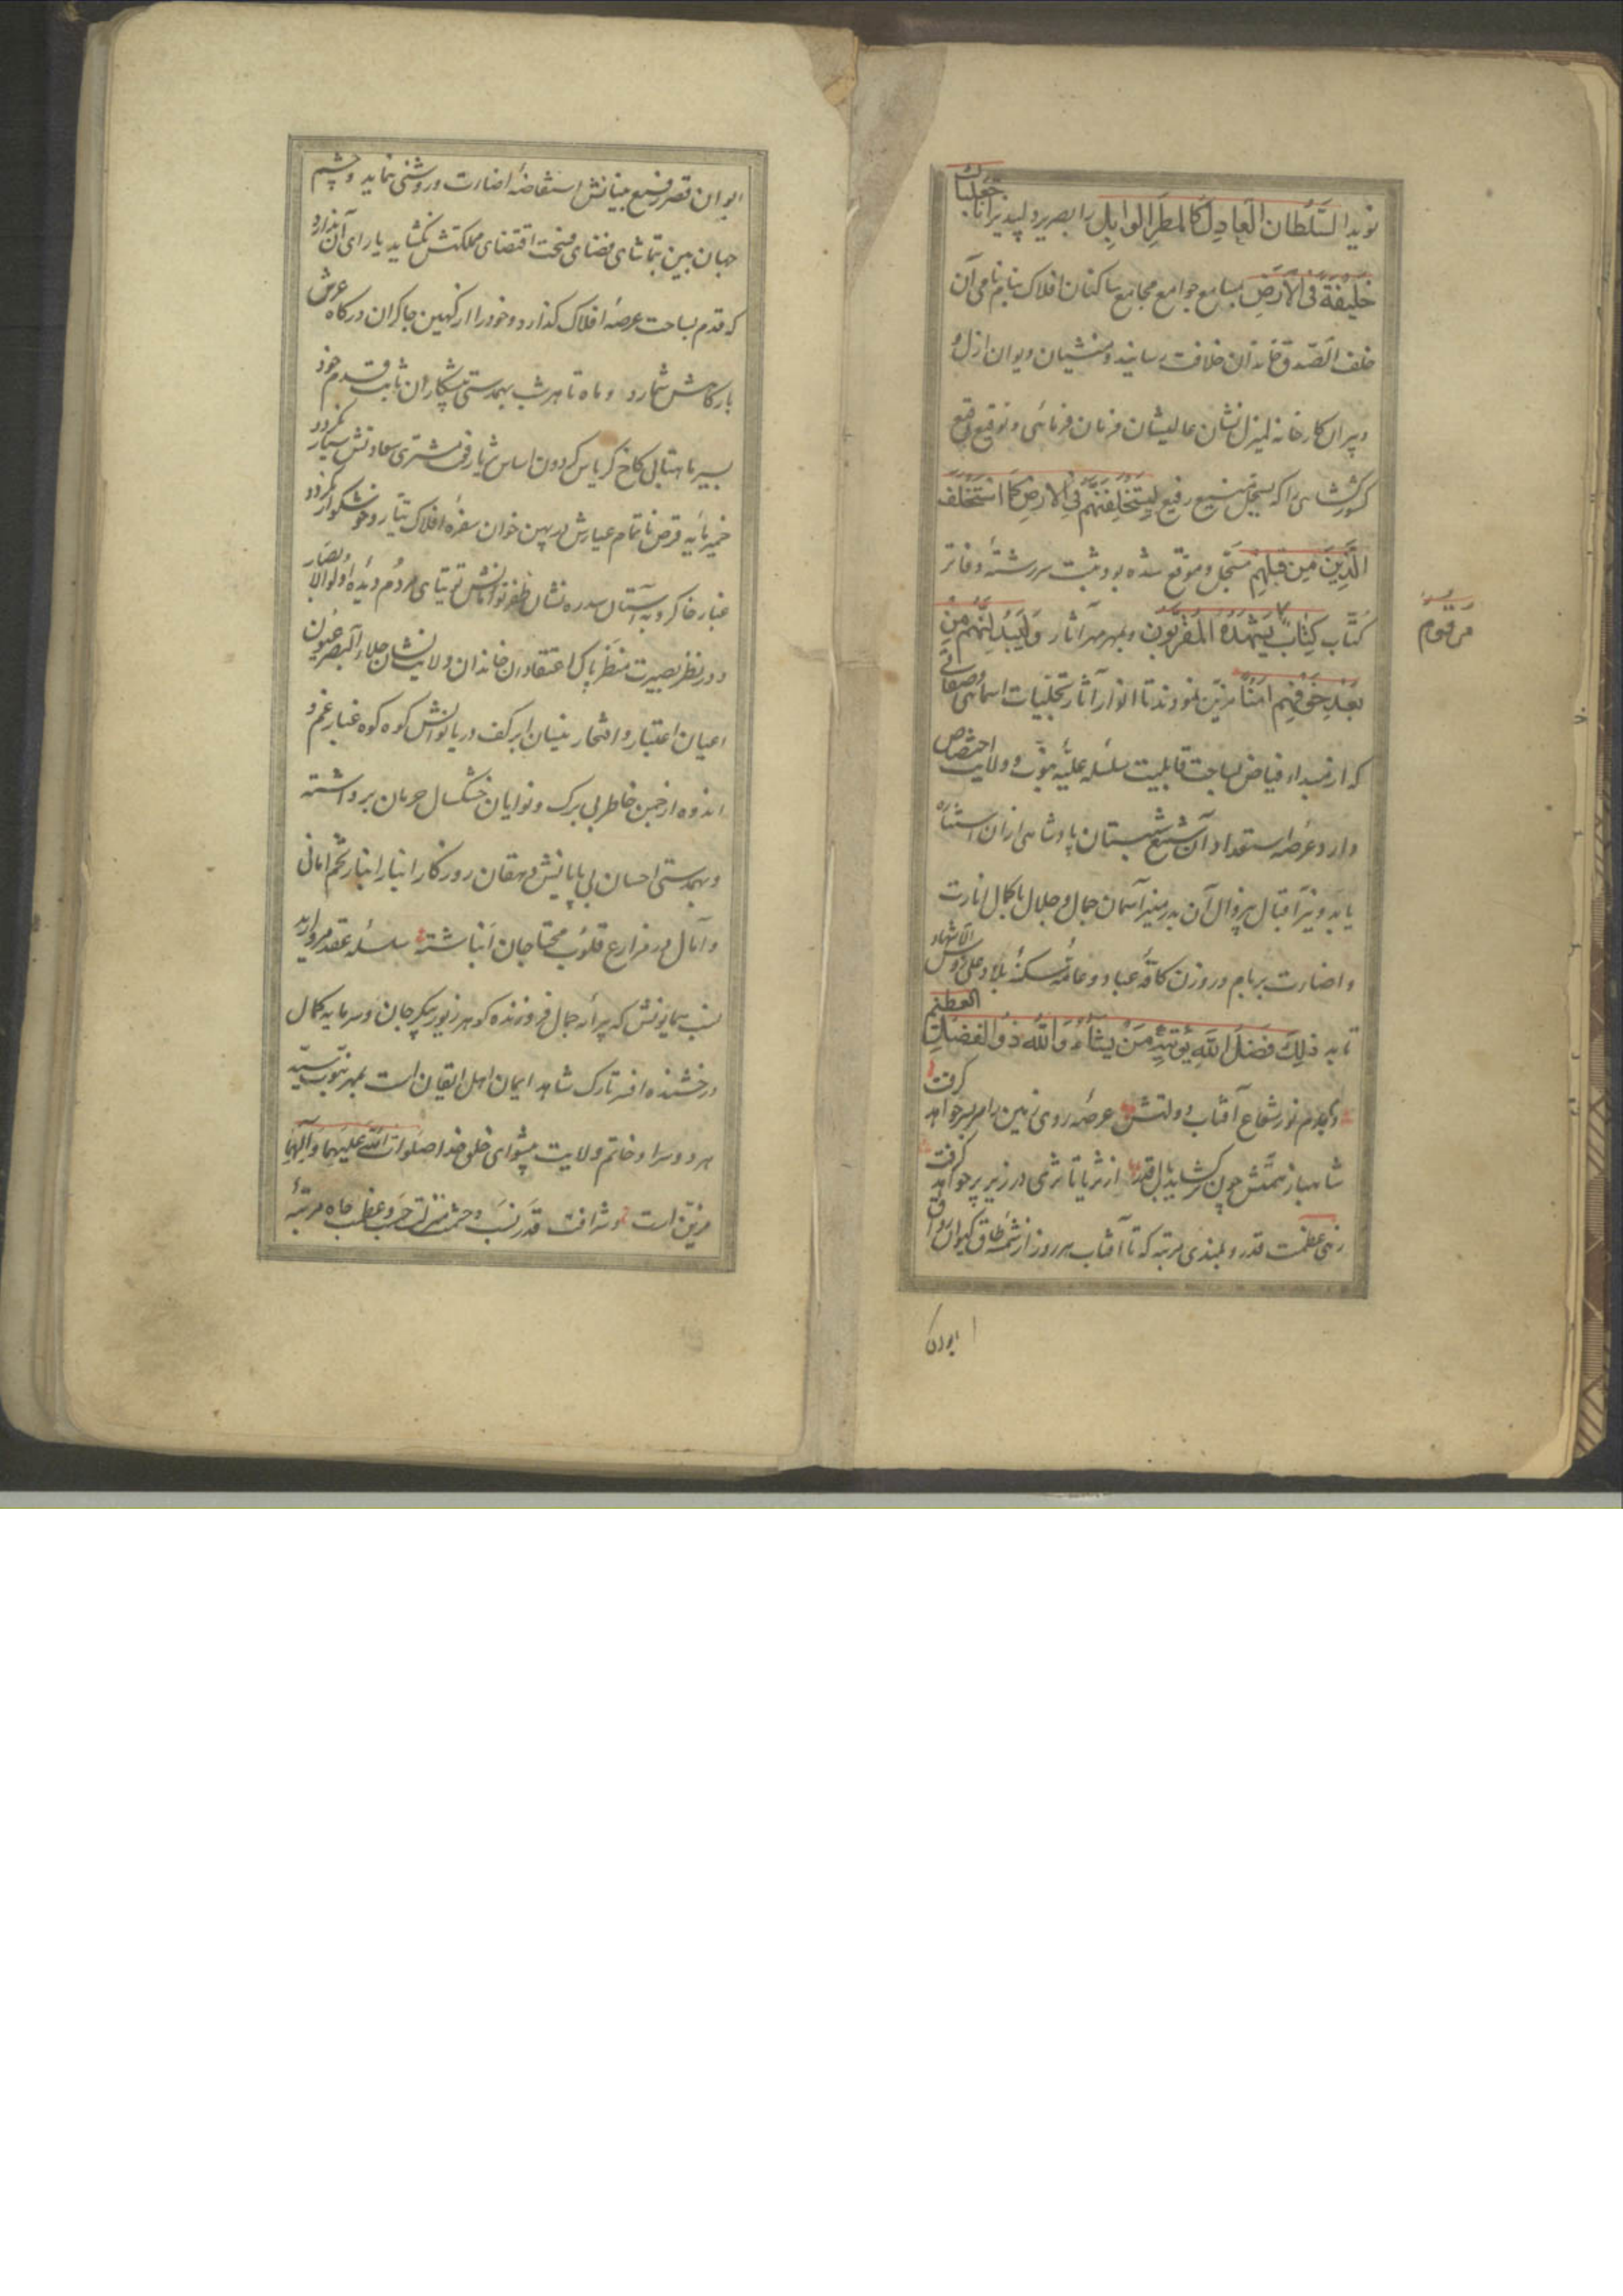 نوید السَّلطان العادِل کالمطَرِ الوابِل را بصریر دلپذیر اناجعلناک
خَلیفَةً فی الاَرضِ بمسامع جوامع مجامع ساکنان افلاک بنام نامی آن
خلف الصّدق خاندان خلافت رسانید و منشیان دیوان ازل و
دبیران کارخانه لم‌یزل نشان عالیشان فرمان فرمائی و توقیع وقیع
کشورکشائی را که بسجل منیع رفیع لَیَستَخلِفَنَّهُم فی الارضِ کَمَا استَخلَفَ
الَّذینَ مِن قَبلِهِم مسجّل و موقع شده بود ثبت سررشتهٔ دفاتر
کُتّاب کِتابٌ یَشهَدُهُ المُقَرَّبون و بمهر مهر آثار وَلَیُبَدِّلَنَّهُم مِن
مَرقوم
بَعدِ خَوفِهِم اَمناً مزیّن نمودند تا انوار آثار تجلّیات اسمائی و صفاتی
که از مبداء فیاض بساحت قابلیت سلسله علیّه نبوّت و ولایت اختصاص
دارد عرصهٔ استعداد آن شمع شبستان پادشاهی ازان استناره
یابد و نیّر اقبال بیزوال آن بدر منیر آسمان جمال و جلال باکمال انارت
و اضارت بر بام و روزن کافّه عباد و عامّه سکنهٔ بلاد و علی رؤس الاشهاد
تابد ذلِکَ فَضلُ اللهِ یُؤتیهِ مَن یشاءُ وَاللهُ ذُو الفَضلِ العَظیم
دایم نور شعاع آفتاب دولتش عرصهٔ روی زمین را سربسر خواهد گرفت
شاهباز همّتش چون برکشاید بال قدر از ثریا تا ثری در زیر پر خواهد گرفت
زهی عظمت قدر و بلندی مرتبه که تا آفتاب هر روز از شمسهٔ طاق کیوان رواق
ایوان
ایوان قصر رفیع بنیانش استفاضهٔ اضارت و روشنی نماید و چشم
جهان بین بتماشای فضای فسحت اقتضای مملکتش نکشاید یارای آن ندارد
که قدم بساحت عرصهٔ افلاک گذارد و خود را از کهین چاکران درکاه عرش
بارکاهش شمارد و ماه تا هر شب بهمدستی پیشکاران ثابت قدم خود
بسیر ماهتابی کاخ کریاس کردون اساس ثریا رفعت مشتری سعادتش سیار نگردد
خمیر مایه قرص ناتمام عیارش در پهن خوان سفره افلاک تیار و خوشکوار نگردد
غبار خاکروبه آستان سدره نشان ظفر توامانش توتیای مردُم دیدهٔ اولوالابصار
و در نظر بصیرت منظر پاک اعتقادان خاندان ولایت نشان جلاء البصر عیون
اعیان اعتبار و افتخار نیسان ابر کف دریا نوالش کوه کوه غبار غم و
اندوه از خرمن خاطر بی برک و نوایان خشکسال حرمان برداشته
و بهمدستی احسان بی پایانش دهقان روزکار انبار انبار تخم امانی
و آمال در مزارع قلوب محتاجان انباشته سلسله عقد مروارید
نسب همایونش که پیرایه جمال فروزنده کوهر زیور پیکر جان و سرمایه کمال
درخشنده افسر تارک شاهد ایمان اهل ایقان است بمهر نبوّت سیّد
هر دو سرا و خاتم ولایت پیشوای خلق خدا صَلَوات اللهِ عَلَیهِما وَآلِهِما
مزیّن است و شرافت قدر نسب و حشمت منزلت حسب و عظمت جاه مرتبهٔ